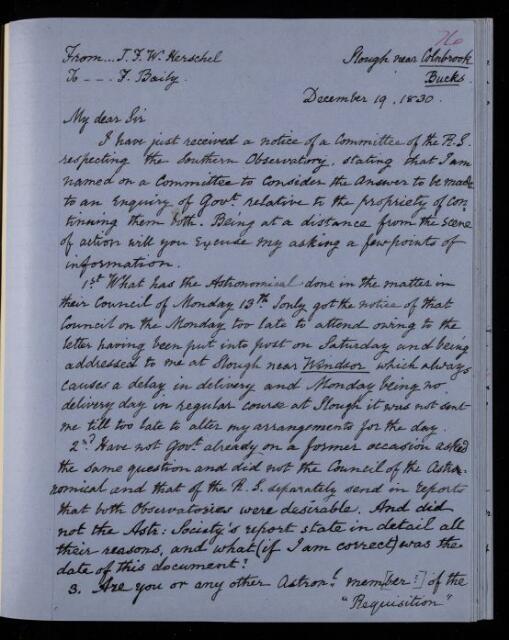 76
From... J. F. W. Herschel
Slough near Colnbrook
To --- F. Baily.
Bucks.
December 19, 1830.
My dear Sir
I have just received a notice of a Committee of the R.S.
respecting the Southern Observatory, stating that I am
named on a Committee to consider the Answer to be made
to an enquiry of Govt. relative to the propriety of con-
tinuing them both. Being at a distance from the scene
of action will you excuse my asking a few points of
information.
1st What has the Astronomical done in the matter in
their Council of Monday 13th I only got the notice of that
Council on the Monday too late to attend owing to the
letter having been put into post on Saturday and being
addressed to me at Slough near Windsor which always
causes a delay in delivery and Monday being no
delivery day in regular course at Slough it was not sent
me till too late to alter my arrangements for the day.
2nd Have not Govt. already on a former occasion asked
the same question and did not the Council of the Astro:
nomical and that of the R.S. separately send in reports
that both Observatories were desirable. And did
not the Astr: Society's report state in detail all
their reasons, and what (if I am correct) was the
date of this document?
3. Are you or any other Astronl. mem[ber?] of the
"Requisition"